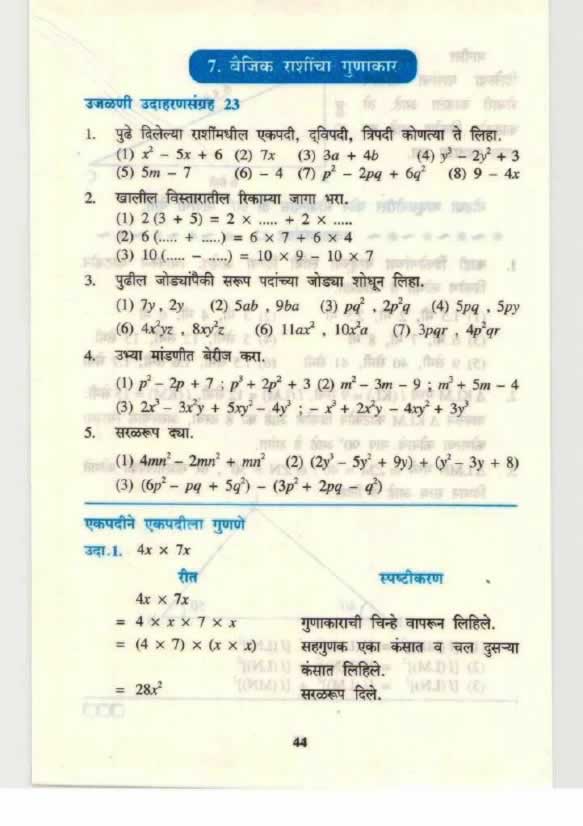 7. बैजिक राशींचा गुणाकार
उजळणी उदाहरणसंग्रह 23
1. पुढे दिलेल्या राशींमधील एकपदी, द्विपदी, त्रिपदी कोणत्या ते लिहा.
(1) x² − 5x + 6 (2) 7x (3) 3a + 4b (4) y³ − 2y² + 3
(5) 5m − 7 (6) − 4 (7) p² − 2pq + 6q² (8) 9 − 4x
2. खालील विस्तारातील रिकाम्या जागा भरा.
(1) 2 (3 + 5) = 2 × ..... + 2 × .....
(2) 6 (..... + .....) = 6 × 7 + 6 × 4
(3) 10 (..... − .....) = 10 × 9 − 10 × 7
3. पुढील जोड्यांपैकी सरूप पदांच्या जोड्या शोधून लिहा.
(1) 7y , 2y (2) 5ab , 9ba (3) pq² , 2p²q (4) 5pq , 5py
(6) 4x²yz , 8xy²z (6) 11ax² , 10x²a (7) 3pqr , 4p²qr
4. उभ्या मांडणीत बेरीज करा.
(1) p² − 2p + 7 ; p³ + 2p² + 3 (2) m² − 3m − 9 ; m³ + 5m − 4
(3) 2x³ − 3x²y + 5xy² − 4y³ ; − x³ + 2x²y − 4xy² + 3y³
5. सरळरूप द्या.
(1) 4mn² − 2mn² + mn² (2) (2y³ − 5y² + 9y) + (y² − 3y + 8)
(3) (6p² − pq + 5q²) − (3p² + 2pq − q²)
एकपदीने एकपदीला गुणणे
उदा.1. 4x × 7x
रीत स्पष्टीकरण
4x × 7x
= 4 × x × 7 × x गुणाकाराची चिन्हे वापरून लिहिले.
= (4 × 7) × (x × x) सहगुणक एका कंसात व चल दुसऱ्या
कंसात लिहिले.
= 28x² सरळरूप दिले.
44